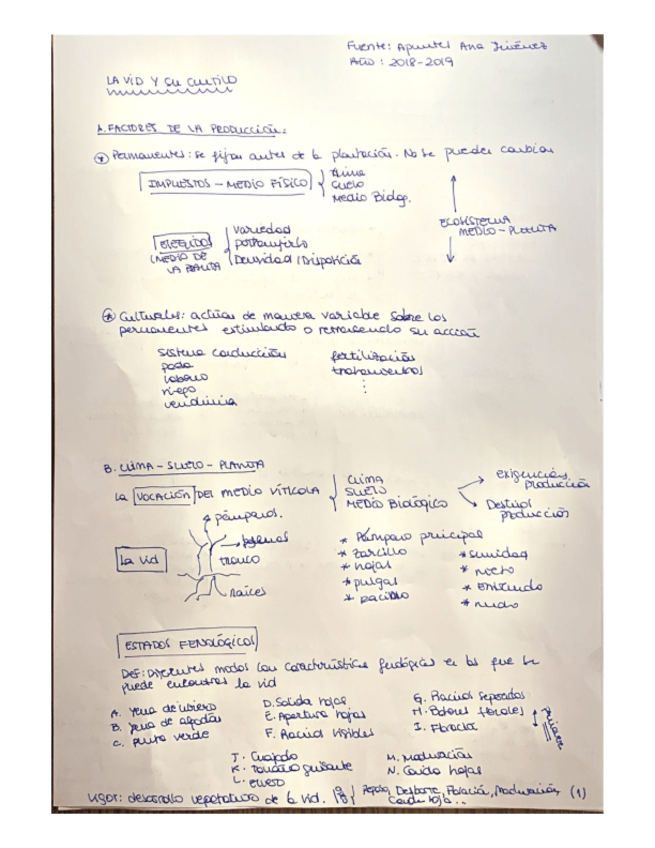 Fuente: Apuntes Ana Jiménez
Año: 2018-2019
LA VID Y SU CULTIVO
A. FACTORES DE LA PRODUCCIÓN.
Permanentes: se fijan antes de la plantación. No se pueden cambiar
IMPUESTOS - MEDIO FÍSICO
Clima
Suelo
Medio Biólog.
ECOSISTEMA
MEDIO - PLANTA
ELEGIDOS
(MEDIO DE
LA PLANTA
Variedad
portainjerto
Densidad / Disposición
Culturales: actúan de manera variable sobre los
permanentes estimulando o retrasando su acción
sistema conducción
poda
laboreo
riego
vendimia
fertilización
tratamientos
⋮
B. CLIMA - SUELO - PLANTA
LA VOCACIÓN DEL MEDIO VÍTICOLA
CLIMA
SUELO
MEDIO BIOLÓGICO
exigencias
producción
Destino
producción
La vid
pámpanos.
brazos
tronco
raíces
* Pámpano principal
* zarcillo
* hojas
* pulgar
* racimo
* sumidad
* nieto
* entrenudo
* nudo
ESTADOS FENOLÓGICOS
DEF: Diferentes modos con características fenológicas en los que se
puede encontrar la vid
A. Yema de invierno
B. Yema de algodón
C. Punta verde
D. Salida hojas
E. Apertura hojas
F. Racimos visibles
G. Racimos separados
H. Botones florales
I. Floración
J. Cuajado
K. Tamaño guisante
L. envero
M. Maduración
N. Caída hojas
VIGOR: desarrollo vegetativo de la vid.
Reposo, Desborre, Floración, Maduración,
Caída hoja...
(1)